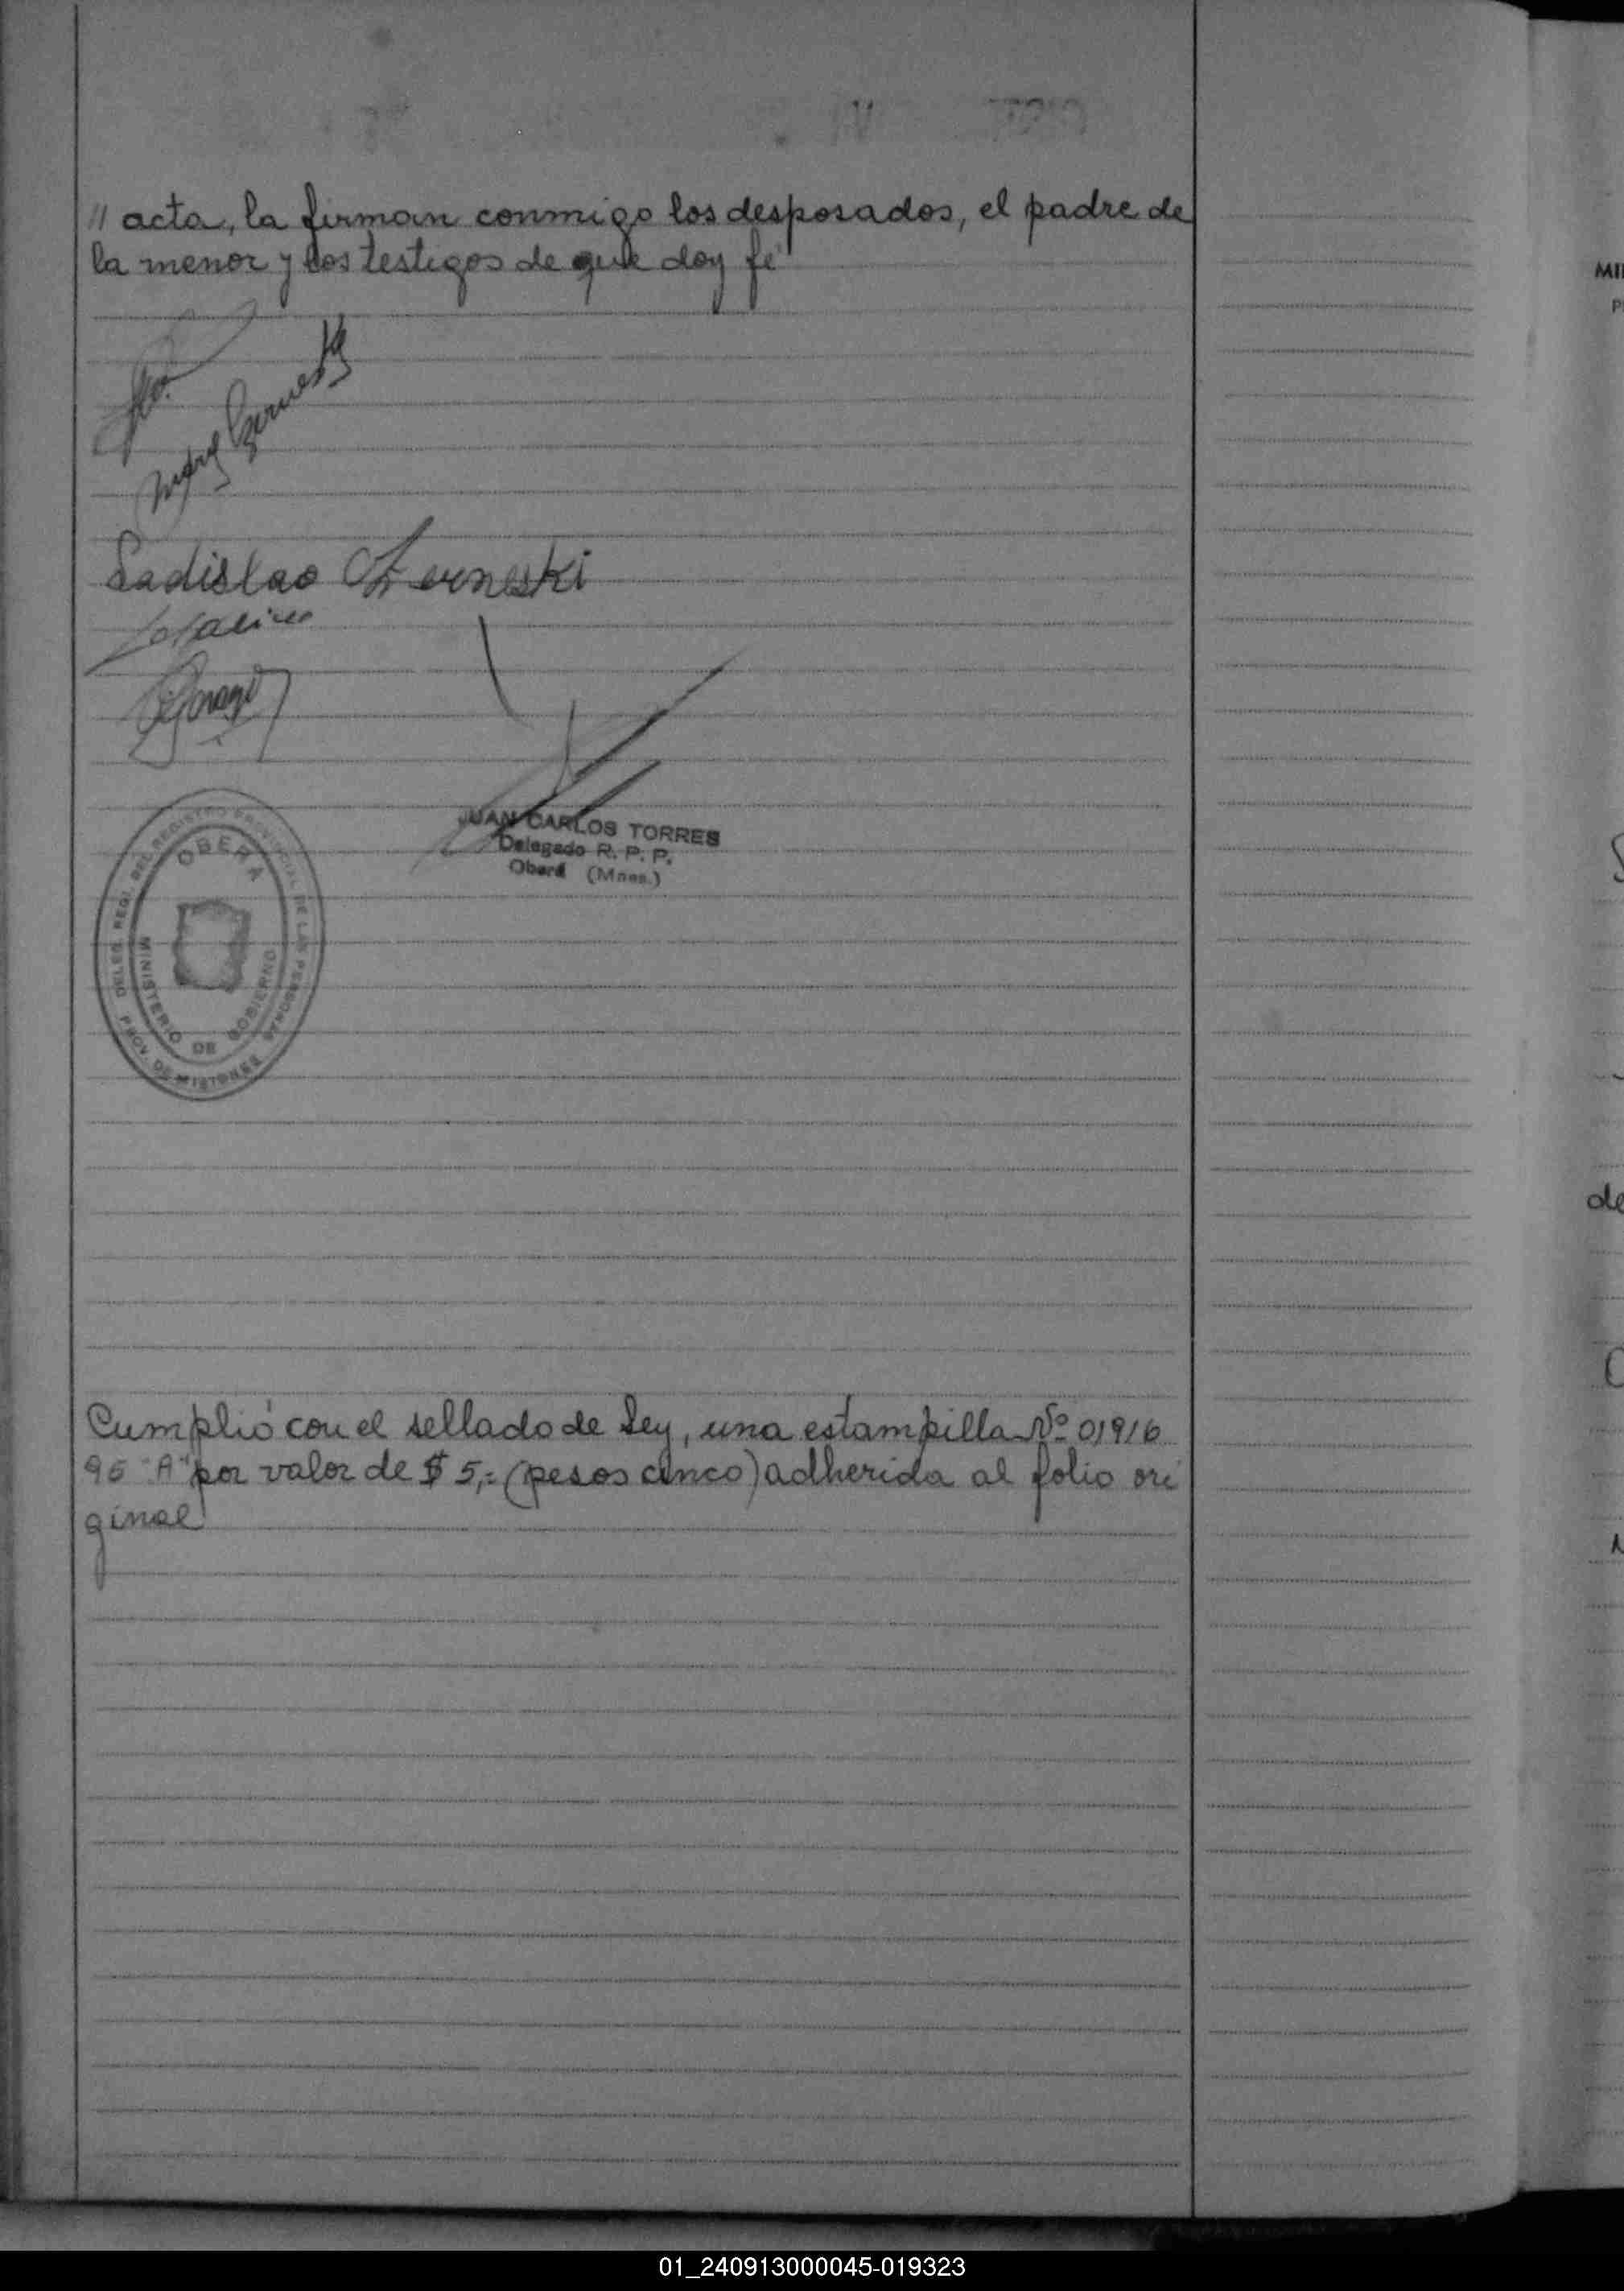 // acta, la firman conmigo los desposados, el padre de
la menor y los testigos de que doy fé
Ladislao Czerneski
JUAN CARLOS TORRES
Delegado R. P. P.
Oberá (Mnes.)
DELEG. REG. DEL REGISTRO PROVINCIAL DE LAS PERSONAS
OBERA
MINISTERIO DE GOBIERNO
PROV. DE MISIONES
Cumplió con el sellado de Ley, una estampilla Nº 01916
95 "A" por valor de $ 5,= (pesos cinco) adherida al folio ori
ginal
de
01_240913000045-019323